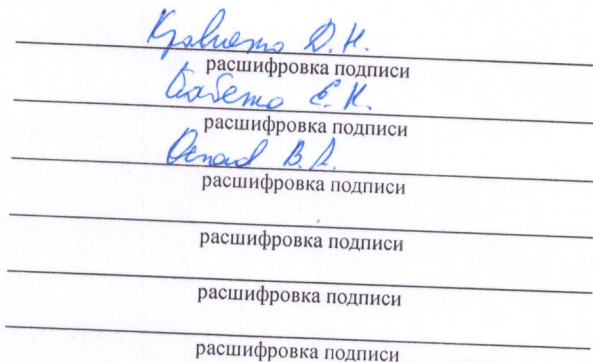 Д. Н.
расшифровка подписи
Е. К.
расшифровка подписи
В. А.
расшифровка подписи
расшифровка подписи
расшифровка подписи
расшифровка подписи